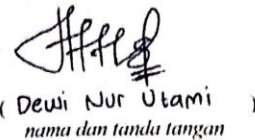 ( Dewi Nur Utami )
nama dan tanda tangan